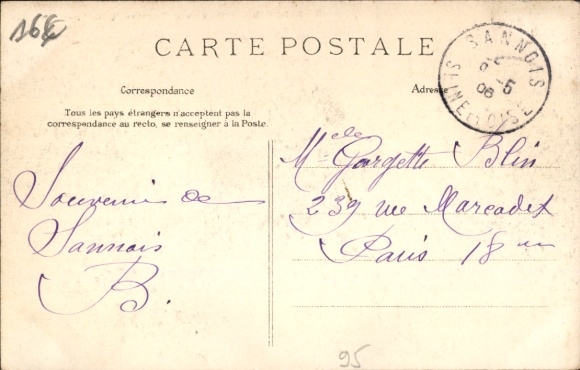 CARTE POSTALE
Correspondance
Adresse
Tous les pays étrangers n'acceptent pas la
correspondance au recto, se renseigner à la Poste.
SANNOIS
SEINE ET OISE
5
06
Souvenir de
Sannois
B.
Melle Georgette Blin
239 rue Marcadet
Paris 18me
95